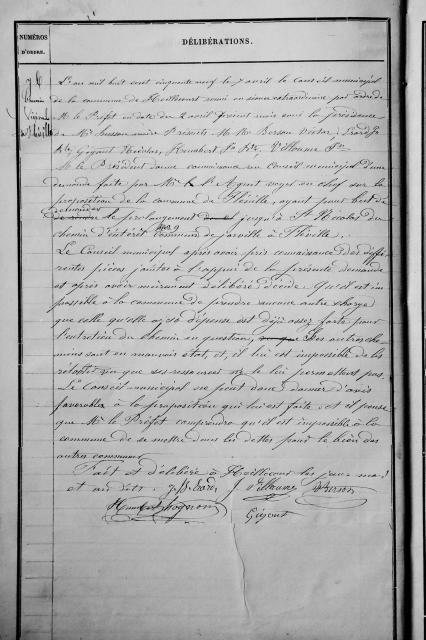 NUMÉROS
D'ORDRE.
DÉLIBÉRATIONS.
L'an mil huit cent cinquante neuf le 7 avril le conseil municipal
de la commune de réuni en session extraordinaire par ordre de
M. le Préfet en date du 2 avril présent mois sous la présidence
de Mr Husson maire Présents M. Mrs Berson Victor,
Gigout Nicolas, Humbert
M. le Président donne connaissance au Conseil municipal d'une
demande faite par Mr l'Agent voyer en chef sur la
proposition de la commune de Fléville, ayant pour but de
le prolongement jusqu'à St Nicolas du
chemin d'intérêt commun de jarville à Fléville.
Le Conseil municipal après avoir pris connaissance des diffé
rentes pièces jointes à l'appui de la présente demande
et après avoir mûrement délibéré décide qu'il est im
possible à la commune de prendre aucune autre charge
que celle qu'elle a, sa dépense est déjà assez forte pour
l'entretien du chemin en question, Ses autres che
mins sont en mauvais état, et, il lui est impossible de les
rétablir vu que ses ressources ne le lui permettent pas.
Le Conseil municipal ne peut donc donner d'avis
favorable à la proposition qui lui est faite, et il pense
que Mr le Préfet comprendra qu'il est impossible à la
commune de se mettre dans les dettes pour le bien des
autres communes
Fait et délibéré à les jour, mois
et an dits.
Berson
Gigout